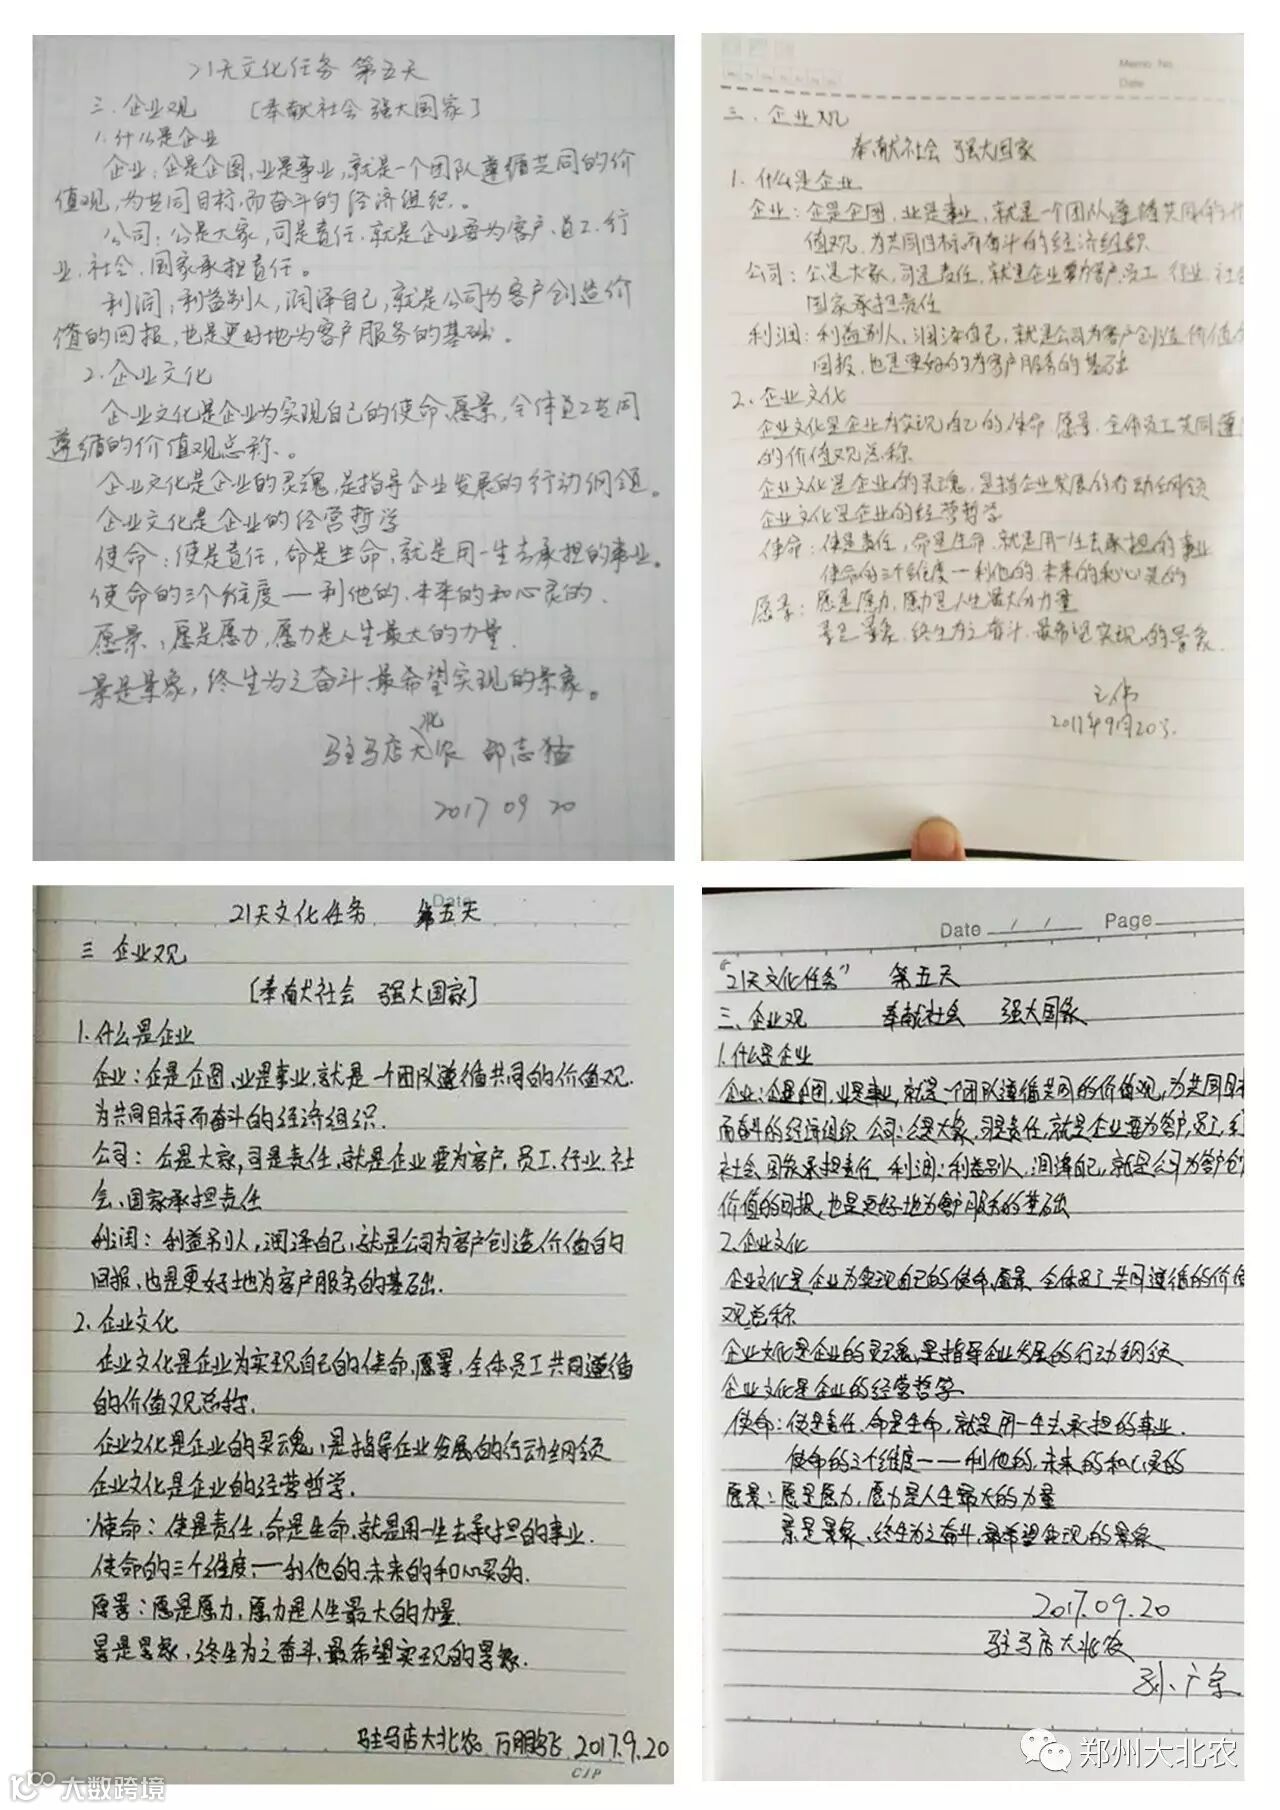 21天文化任务 第五天
三.企业观 [奉献社会 强大国家]
1.什么是企业
企业:企是企图,业是事业,就是一个团队遵循共同的价
值观,为共同目标,而奋斗的经济组织.。
公司:公是大家,司是责任.就是企业要为客户、员工、行
业、社会、国家承担责任。
利润,利益别人,润泽自己,就是公司为客户创造价
值的回报,也是更好地为客户服务的基础。
2.企业文化
企业文化是企业为实现自己的使命、愿景,全体员工共同
遵循的价值观总称.。
企业文化是企业的灵魂,是指导企业发展的行动纲领。
企业文化是企业的经营哲学
使命:使是责任,命是生命,就是用一生去承担的事业。
使命的三个维度——利他的、未来的和心灵的.
愿景、愿是愿力,愿力是人生最大的力量.
景是景象,终生为之奋斗、最希望实现的景象。
驻马店大北农 邵志猛
2017 09 20
Memo No.
Date
三、企业观
奉献社会 强大国家
1.什么是企业
企业:企是企图,业是事业,就是一个团队遵循共同的价
值观,为共同目标而奋斗的经济组织
公司:公是大家,司是责任,就是企业要为客户、员工、行业、社会
国家承担责任
利润:利益别人,润泽自己,就是公司为客户创造价值的
回报,也是更好的为客户服务的基础
2、企业文化
企业文化是企业为实现自己的使命、愿景,全体员工共同遵
的价值观总称
企业文化是企业的灵魂,是指企业发展的行动纲领
企业文化是企业的经营哲学
使命:使是责任,命是生命,就是用一生去承担的事业
使命的三个维度一利他的、未来的和心灵的
愿景:愿是愿力,愿力是人生最大的力量
景是景象,终生为之奋斗,最希望实现的景象.
王伟
2017年9月20日.
Date
21天文化任务 第五天
三 企业观
[奉献社会 强大国家]
1.什么是企业
企业:企是企图、业是事业.就是一个团队遵循共同的价值观.
为共同目标而奋斗的经济组织.
公司:公是大家,司是责任.就是企业要为客户、员工、行业、社
会、国家承担责任
利润:利益别人,润泽自己,就是公司为客户创造价值的
回报,也是更好地为客户服务的基础.
2.企业文化
企业文化是企业为实现自己的使命,愿景,全体员工共同遵循
的价值观总称.
企业文化是企业的灵魂,是指导企业发展的行动纲领
企业文化是企业的经营哲学.
使命:使是责任,命是生命,就是用一生去承担的事业.
使命的三个维度,一利他的、未来的和心灵的.
愿景:愿是愿力,愿力是人生最大的力量.
景是景象,终生为之奋斗、最希望实现的景象.
驻马店大北农 万鹏飞 2017.9.20
CIP
Date / / Page
“21天文化任务” 第五天
三、企业观 奉献社会 强大国家
1.什么是企业
企业:企是企图,业是事业,就是一个团队遵循共同的价值观,为共同目标
而奋斗的经济组织 公司:公是大家,司是责任,就是企业要为客户,员工,行
社会,国家承担责任 利润:利益别人,润泽自己,就是公司为客户创
价值的回报,也是更好地为客户服务的基础
2.企业文化
企业文化是企业为实现自己的使命,愿景 全体员工共同遵循的价值
观总称
企业文化是企业的灵魂,是指导企业发展的行动纲领
企业文化是企业的经营哲学.
使命:使是责任,命是生命,就是用一生去承担的事业.
使命的三个维度——利他的,未来的和心灵的
愿景:愿是愿力,愿力是人生最大的力量
景是景象,终生为之奋斗,最希望实现的景象
2017.09.20
驻马店大北农
孙广宗
郑州大北农
大数跨境